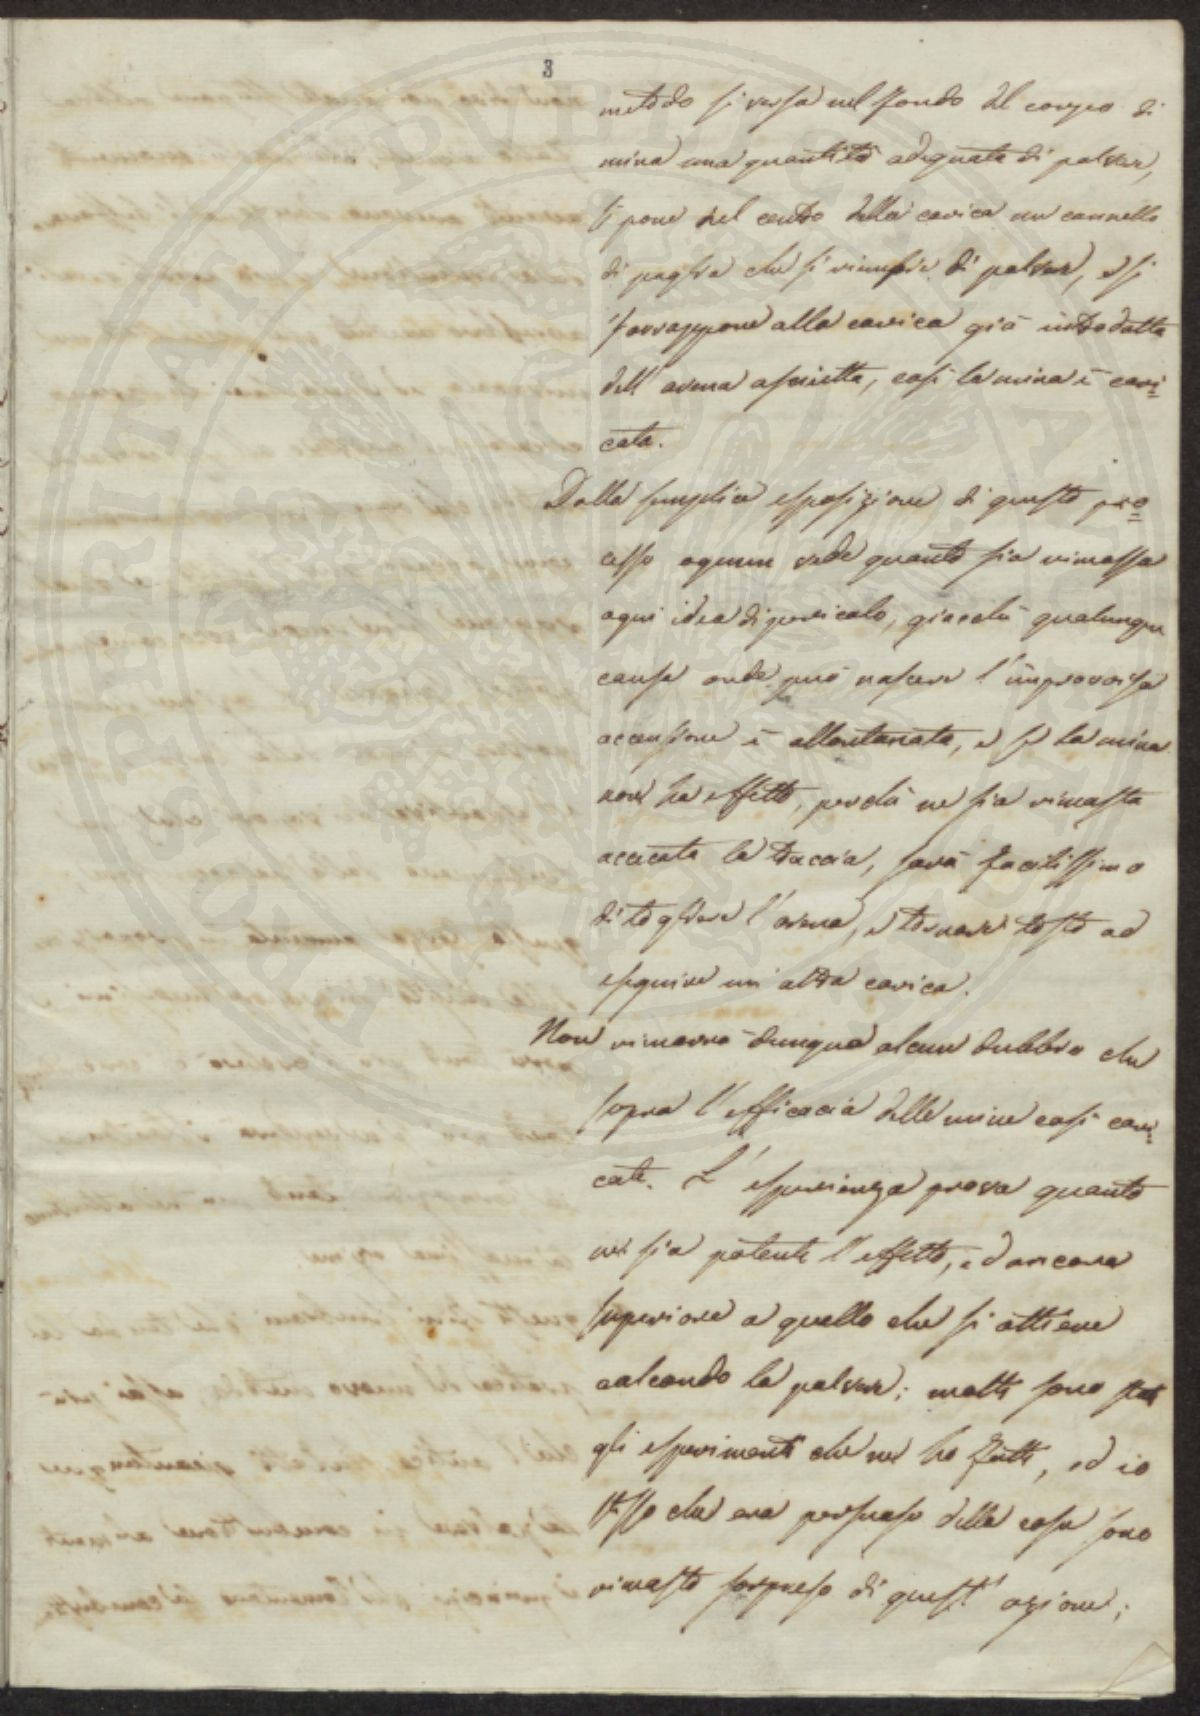 3
metodo si versa nel fondo del corpo di
mina una quantità adeguata di polvere,
si pone nel centro della carica un cannello
di paglia che si riempie di polvere, e si
sovrappone alla carica già introdotta
dell'arena asciutta, così la mina è cari=
cata.
Dalla semplice esposizione di questo pro=
cesso ognun vede quanto sia rimossa
ogni idea di pericolo, giacchè qualunque
causa onde può nascere l'improvvisa
accensione è allontanata, e se la mina
non ha effetto, perchè ne sia rimasta
accecata la traccia, sarà facilissimo
di togliere l'arena, e tornare tosto ad
eseguire un'altra carica.
Non rimarrà dunque alcun dubbio che
sopra l'efficacia delle mine così cari=
cate. L'esperienza prova quanto
ne sia potente l'effetto, ed ancora
superiore a quello che si ottiene
calcando la polvere; molti sono stati
gli esperimenti che ne ho fatti, ed io
stesso che era persuaso della cosa sono
rimasto sorpreso di quest'azione;